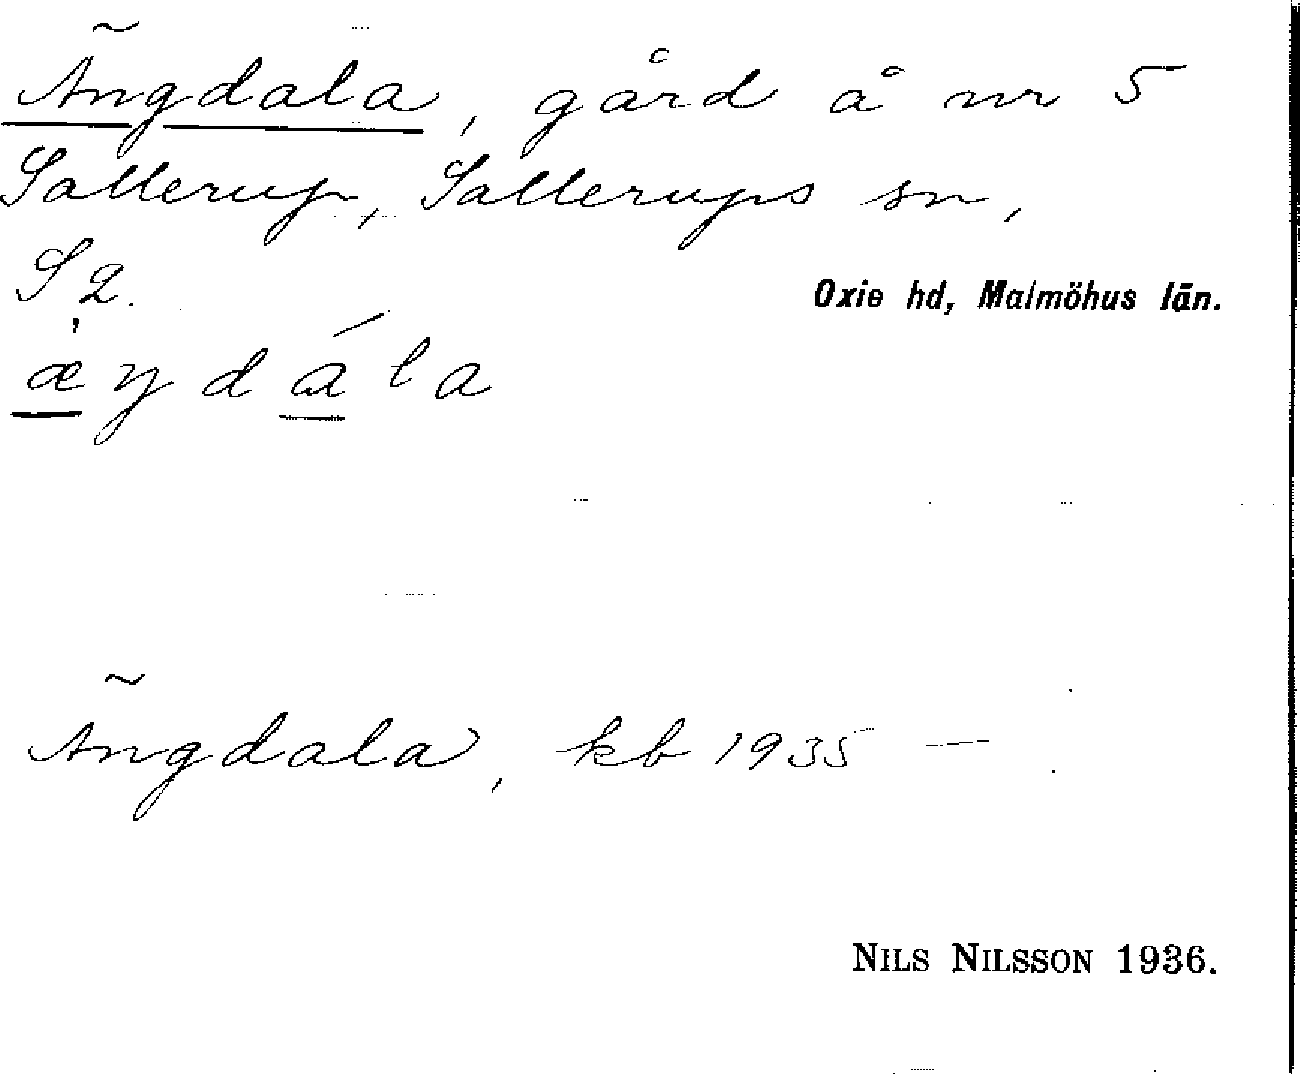 Ängdala, gård å nr 5
Sallerup, Sallerups sn,
S 2.
Oxie hd, Malmöhus län.
æŋdála
Ängdala, kb 1935 —
NILS NILSSON 1936.